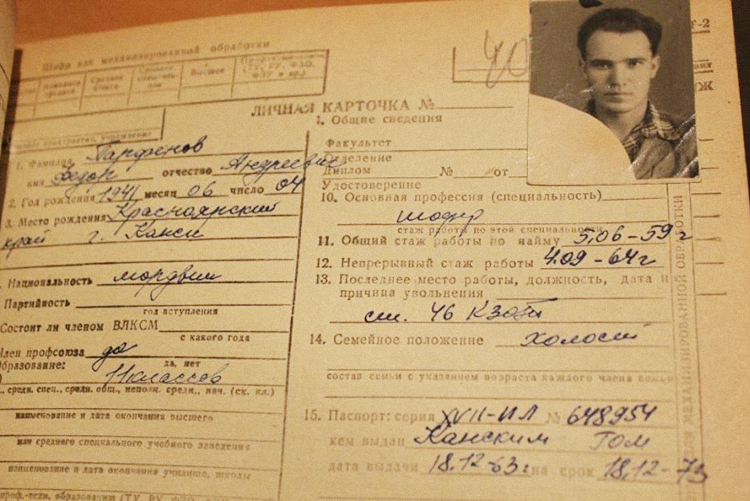 Шифр для механизированной обработки
Высшее
(ТУ, РУ, ФЗО,
40
ЛИЧНАЯ КАРТОЧКА №
1. Общие сведения
1. Фамилия Парфенов
имя отчество Андреевич
2. Год рождения 1941 месяц 06 число 04
3. Место рождения Красноярский
край г. Канск
Национальность мордвин
Партийность
год вступления
Состоит ли членом ВЛКСМ
с какого года
Член профсоюза да
да, нет
Образование: 11 классов
наименование и дата окончания высшего
или среднего специального учебного заведения
наименование и дата окончания училища, школы
Факультет
Отделение
Диплом № от
Удостоверение
10. Основная профессия (специальность)
шофер
стаж работы по этой специальности
11. Общий стаж работы по найму 5.06-59г
12. Непрерывный стаж работы 4.09-64г
13. Последнее место работы, должность, дата и
причина увольнения
ст. 46 КЗоТа
14. Семейное положение холост
состав семьи с указанием возраста каждого члена семьи
15. Паспорт: серия XVII-ИЛ № 648954
кем выдан Канским ГОМ
дата выдачи 18.12-63г на срок 18.12-73
МЕХАНИЗИРОВАННОЙ ОБРАБОТКИ